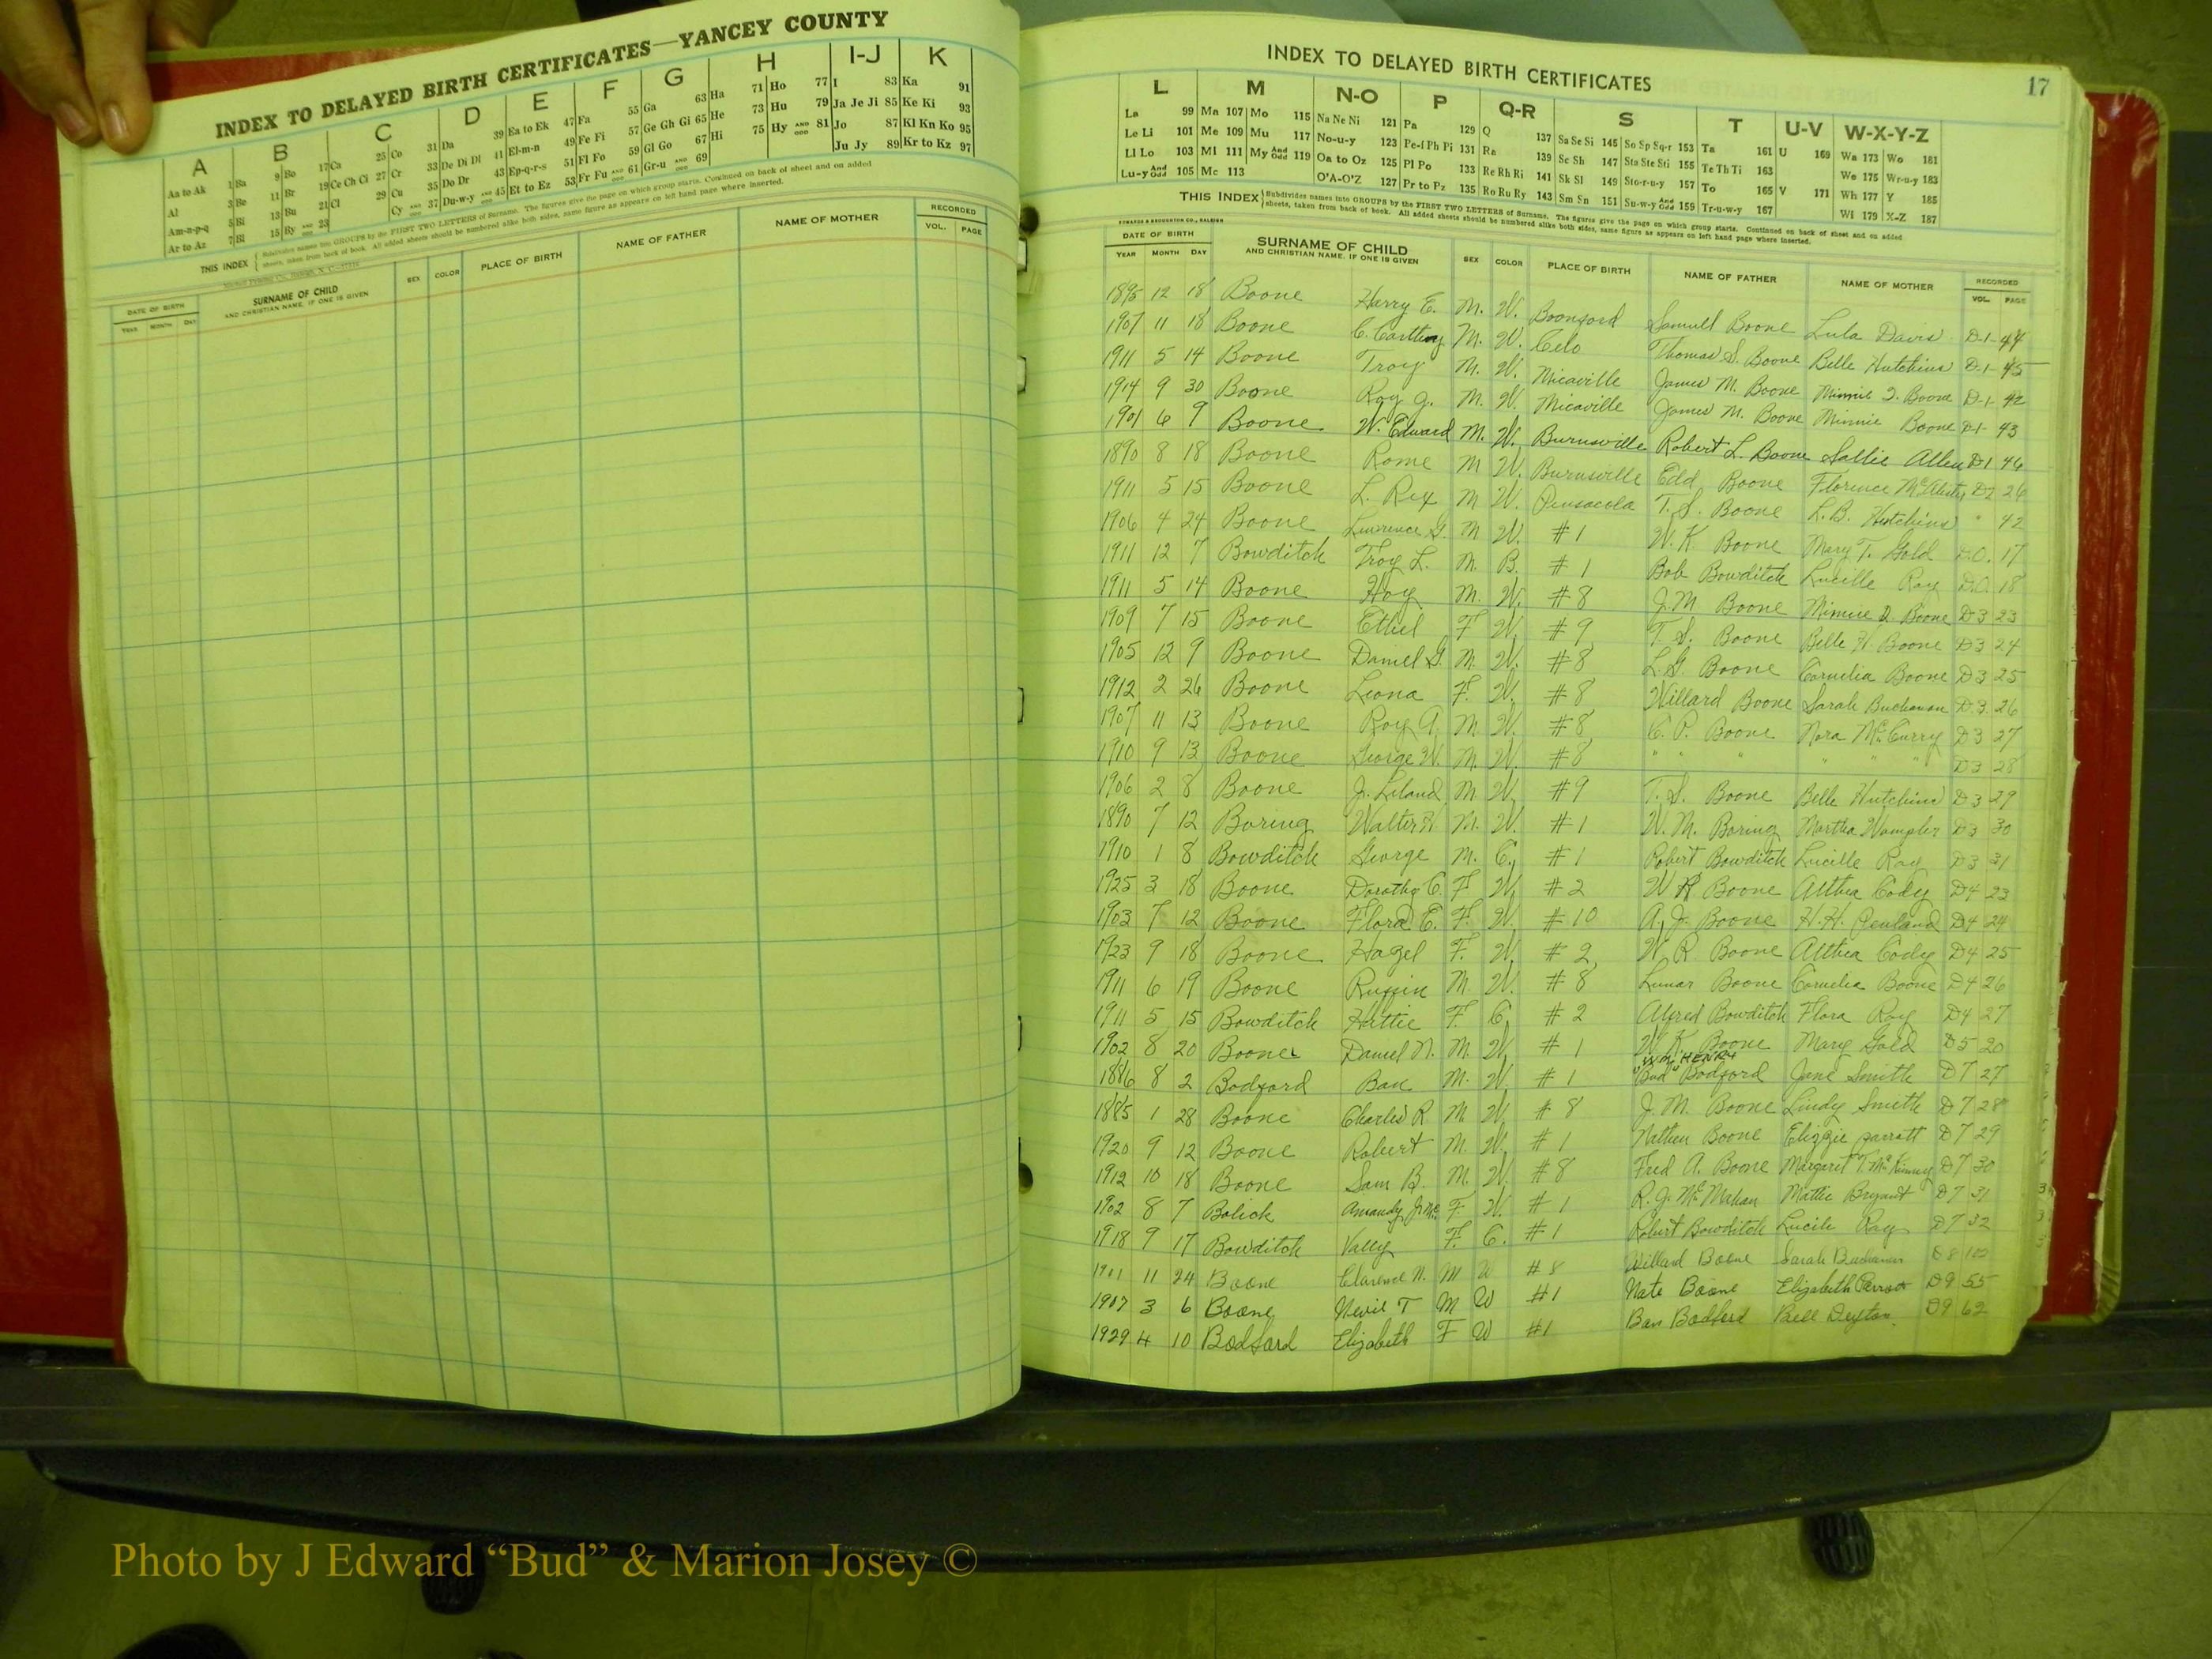 INDEX TO DELAYED BIRTH CERTIFICATES—YANCEY COUNTY
A B C D E F G H I-J K
Aa to Ak 1 Ba 9 Bo 17 Ca 25 Co 31 Da 39 Ea to Ek 47 Fa 55 Ga 63 Ha 71 Ho 77 I 83 Ka 91
Al 3 Be 11 Br 19 Ce Ch Ci 27 Cr 33 De Di Dl 41 El-m-n 49 Fe Fi 57 Ge Gh Gi 65 He 73 Hu 79 Ja Je Ji 85 Ke Ki 93
Am-a-p-q 5 Bi 13 Bu 21 Cl 29 Cu 35 Do Dr 43 Ep-q-r-s 51 Fl Fo 59 Gl Go 67 Hi 75 Hy AND ODD 81 Jo 87 Kl Kn Ko 95
Ar to Az 7 Bl 15 By AND ODD 23 Cy AND ODD 37 Du-w-y AND ODD 45 Et to Ez 53 Fr Fu AND ODD 61 Gr-u AND ODD 69 Ju Jy 89 Kr to Kz 97
THIS INDEX Subdivides names into GROUPS by the FIRST TWO LETTERS of Surname. The figures give the page on which group starts. Continued on back of sheet and on added
sheets, taken from back of book. All added sheets should be numbered alike both sides, same figure as appears on left hand page where inserted.
DATE OF BIRTH SURNAME OF CHILD SEX COLOR PLACE OF BIRTH NAME OF FATHER NAME OF MOTHER RECORDED
YEAR MONTH DAY AND CHRISTIAN NAME, IF ONE IS GIVEN VOL. PAGE
INDEX TO DELAYED BIRTH CERTIFICATES 17
L M N-O P Q-R S T U-V W-X-Y-Z
La 99 Ma 107 Mo 115 Na Ne Ni 121 Pa 129 Q 137 Sa Se Si 145 So Sp Sq-r 153 Ta 161 U 169 Wa 173 Wo 181
Le Li 101 Me 109 Mu 117 No-u-y 123 Pe-f Ph Pi 131 Ra 139 Sc Sh 147 Sta Ste Sti 155 Te Th Ti 163 We 175 Wr-u-y 183
Ll Lo 103 Mi 111 My And Odd 119 Oa to Oz 125 Pl Po 133 Re Rh Ri 141 Sk Sl 149 Sto-r-u-y 157 To 165 V 171 Wh 177 Y 185
Lu-y And Odd 105 Mc 113 O'A-O'Z 127 Pr to Pz 135 Ro Ru Ry 143 Sm Sn 151 Su-w-y And Odd 159 Tr-u-w-y 167 Wi 179 X-Z 187
THIS INDEX Subdivides names into GROUPS by the FIRST TWO LETTERS of Surname. The figures give the page on which group starts. Continued on back of sheet and on added
sheets, taken from back of book. All added sheets should be numbered alike both sides, same figure as appears on left hand page where inserted.
EDWARDS & BROUGHTON CO., RALEIGH
DATE OF BIRTH SURNAME OF CHILD SEX COLOR PLACE OF BIRTH NAME OF FATHER NAME OF MOTHER RECORDED
YEAR MONTH DAY AND CHRISTIAN NAME, IF ONE IS GIVEN VOL. PAGE
1895 12 18 Boone Harry E. M. W. Boonford Samuel Boone Lula Davis D-1-44
1907 11 18 Boone C. M. W. Celo Thomas S. Boone Belle Hutchins D-1-45
1911 5 14 Boone Troy M. W. Micaville James M. Boone Minnie D. Boone D-1-42
1914 9 30 Boone Roy G. M. W. Micaville James M. Boone Minnie Boone D-1-43
1901 6 9 Boone W. Edward M. W. Burnsville Robert L. Boone Sallie Allen D1 46
1890 8 18 Boone Rome M W. Burnsville Edd Boone Florence D2 26
1911 5 15 Boone L. Rex M W. Pensacola T. S. Boone L.B. Hutchins " 42
1906 4 24 Boone Lawrence G. M W. #1 W. K. Boone Mary T. Gold D.O. 17
1911 12 7 Bowditch Troy L. M. B. #1 Bob Bowditch Lucille Ray D.O. 18
1911 5 14 Boone Hoy M. W. #8 J. M Boone Minnie D. Boone D3 23
1909 7 15 Boone Ethel F W. #9 T. S. Boone Belle H. Boone D3 24
1905 12 9 Boone Daniel G. M. W. #8 L. G. Boone Cornelia Boone D3 25
1912 2 26 Boone Leona F. W. #8 Willard Boone Sarah Buchanan D3 26
1907 11 13 Boone Roy A. M W. #8 C. P. Boone Nora McCurry D3 27
1910 9 13 Boone George W. M. W. #8 " " " " " " D3 28
1906 2 8 Boone J. Leland M. W. #9 T. S. Boone Belle Hutchins D3 29
1890 7 12 Boring Walter M. W. #1 W. M. Boring Martha Wampler D3 30
1910 1 8 Bowditch George M. C. #1 Robert Bowditch Lucille Ray D3 31
1925 3 18 Boone Dorothy C. F W. #2 W R Boone Althea Cody D4 23
1903 7 12 Boone Flora E. F. W. #10 A. J. Boone H. H. Penland D4 24
1923 9 18 Boone Hazel F. W. #2 W. R. Boone Althea Cody D4 25
1911 6 19 Boone Ruffin M. W. #8 Lunar Boone Cornelia Boone D4 26
1911 5 15 Bowditch Hattie F. C. #2 Alfred Bowditch Flora Ray D4 27
1902 8 20 Boone Daniel N. M. W. #1 W. K. Boone Mary Gold D5 20
WM. HENRY
1886 8 2 Bodford Ban M. W. #1 "Bud" Bodford Jane Smith D7 27
1885 1 28 Boone Charles R. M W. #8 J. M. Boone Lindy Smith D7 28
1920 9 12 Boone Robert M. W. #1 Nathen Boone Elizzie Parrott D7 29
1912 10 18 Boone Sam B. M. W. #8 Fred A. Boone Margaret T. McKinney D7 30
1902 8 7 Bolick Amandy F. W. #1 R. J. McMahan Mattie Bryant D7 31
1918 9 17 Bowditch Vally F. C. #1 Robert Bowditch Lucile Ray D7 32
1901 11 24 Boone Clarence N. M W #8 Willard Boone Sarah Buchanan D8 102
1907 3 6 Boone Nevil T M W #1 Nate Boone Elizabeth Parrott D9 55
1929 4 10 Bodford Elizabeth F W #1 Ban Bodford Bell Deyton D9 62
Photo by J Edward “Bud” & Marion Josey ©